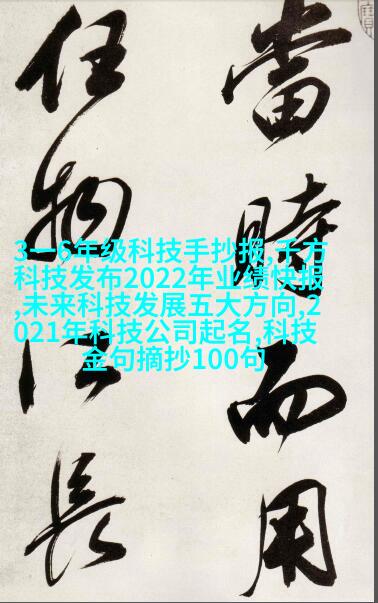 當時而用
任物長
3一6年级科技手抄报,千方
科技发布2022年业绩快报
,未来科技发展五大方向,2
021年科技公司起名,科技
金句摘抄100句